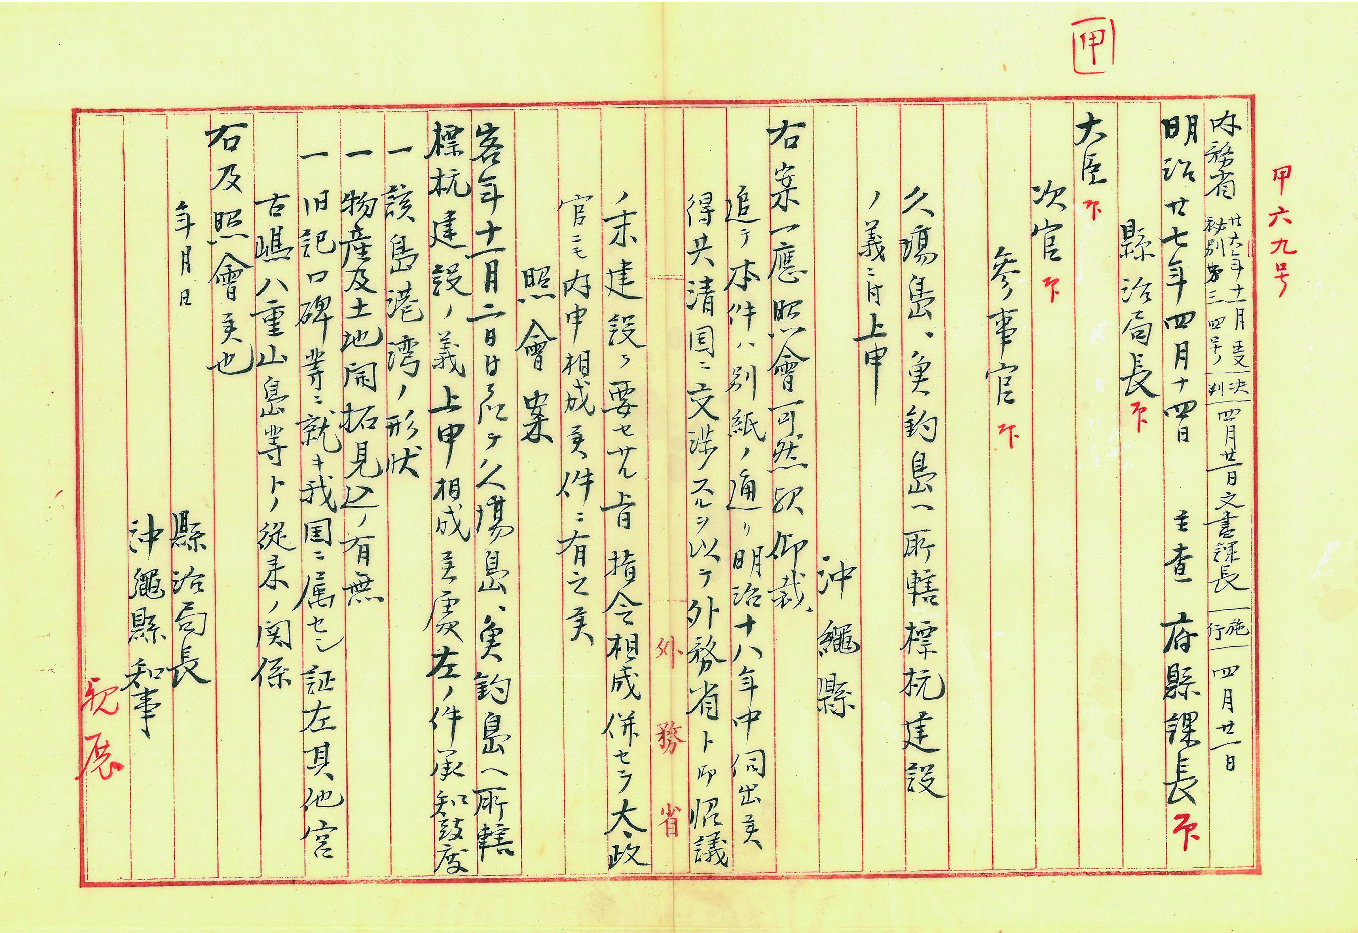 甲
甲六九号
内務省 廿六年十一月 秘別第三四号ノ 決判 四月廿一日 文書課長 施行 四月廿一日
明治廿七年四月十四日 主査 府縣課長
縣治局長
大臣
次官
参事官
久場島、魚釣島ヘ所轄標杭建設
ノ義ニ付上申
沖縄縣
右案一應照會可然歟仰裁
追テ本件ハ別紙ノ通リ明治十八年中伺出候
得共清国ニ交渉スルヲ以テ外務省ト御協議
ノ末建設ヲ要セサル旨指令相成併セテ太政
官ニモ内申相成候件ニ有之候
照會案
客年十一月二日付ヲ以テ久場島、魚釣島ヘ所轄
標杭建設ノ義上申相成候處左ノ件承知致度
一 該島港湾ノ形状
一 物産及土地開拓見込ノ有無
一 旧記口碑等ニ就キ我国ニ属セシ証左其他宮
古嶋八重山島等トノ従来ノ関係
右及照會候也
年月日
縣治局長
沖縄縣知事
親展
外務省